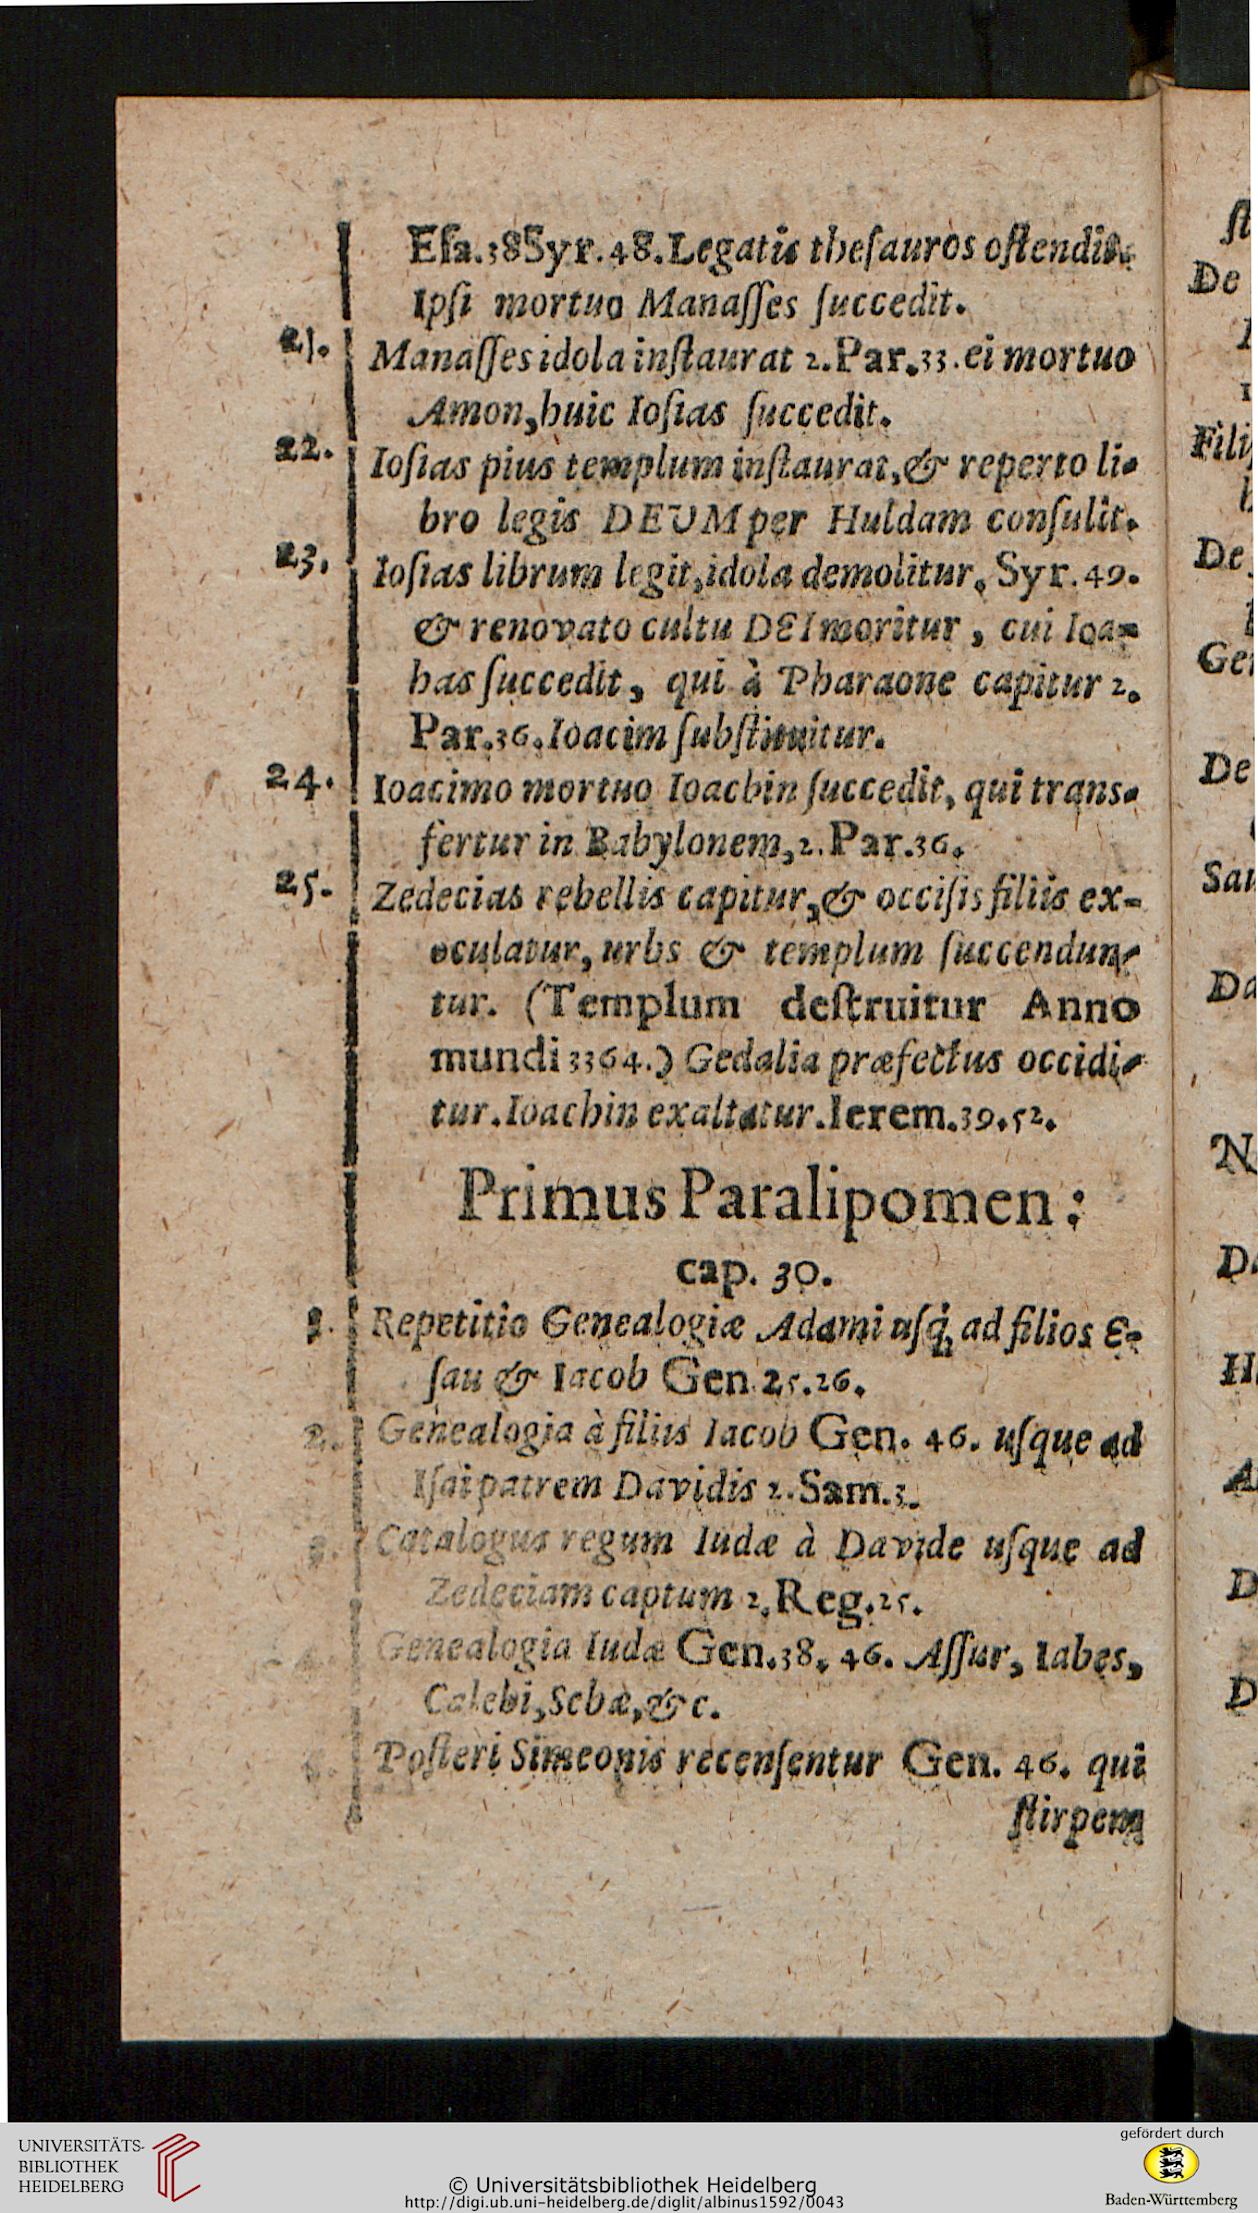 Eſa.38Syr.48.Legatis theſauros oſtendit.
Ipſi mortuo Manaſſes ſuccedit.
21. Manaſſes idola inſtaurat 2.Par.33.ei mortuo
Amon,huic Ioſias ſuccedit.
22. Ioſias pius templum inſtaurat,& reperto li-
bro legis DEUM per Huldam conſulit.
23. Ioſias librum legit,idola demolitur, Syr.49.
& renovato cultu DEI moritur, cui Ioa-
has ſuccedit, qui à Pharaone capitur 2.
Par.36.Ioacim ſubſtituitur.
24. Ioacimo mortuo Ioachin ſuccedit, qui trans-
fertur in Babylonem,2.Par.36.
25. Zedecias rebellis capitur,& occiſis filiis ex-
oculatur, urbs & templum ſuccendun-
tur. (Templum deſtruitur Anno
mundi 3364.) Gedalia præfectus occidi-
tur.Ioachin exaltatur.Ierem.39.52.
Primus Paralipomen:
cap. 30.
1. Repetitio Genealogiæ Adami uſq; ad filios E-
ſau & Iacob Gen.25.26.
2. Genealogia à filiis Iacob Gen. 46. uſque ad
Iſai patrem Davidis 2.Sam.3.
3. Catalogus regum Iudæ à Davide uſque ad
Zedeciam captum 2.Reg.25.
4. Genealogia Iudæ Gen.38. 46. Aſſur, Iabes,
Calebi,Scbæ,&c.
5. Poſteri Simeonis recenſentur Gen. 46. qui
ſtirpem
ſt
De
Fili
De
Ge
De
Sau
Da
N
D
H
A
D
D
UNIVERSITÄTS-
BIBLIOTHEK
HEIDELBERG
© Universitätsbibliothek Heidelberg
http://digi.ub.uni-heidelberg.de/diglit/albinus1592/0043
gefördert durch
Baden-Württemberg